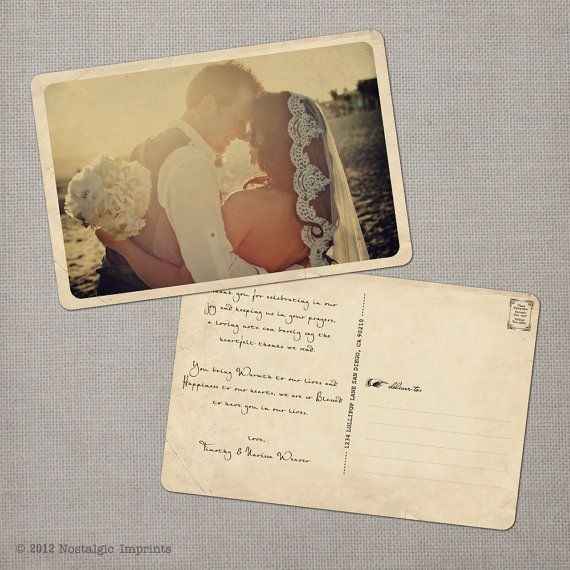 thank you for celebrating in our
joy and keeping us in your prayers,
a loving note can barely say the
heartfelt thanks we send.
You bring Warmth to our lives and
Happiness to our hearts, we are so Blessed
to have you in our lives.
love,
Timothy & Marissa Weaver
1234 LOLLIPOP LANE SAN DIEGO, CA 90210
deliver to:
© 2012 Nostalgic Imprints